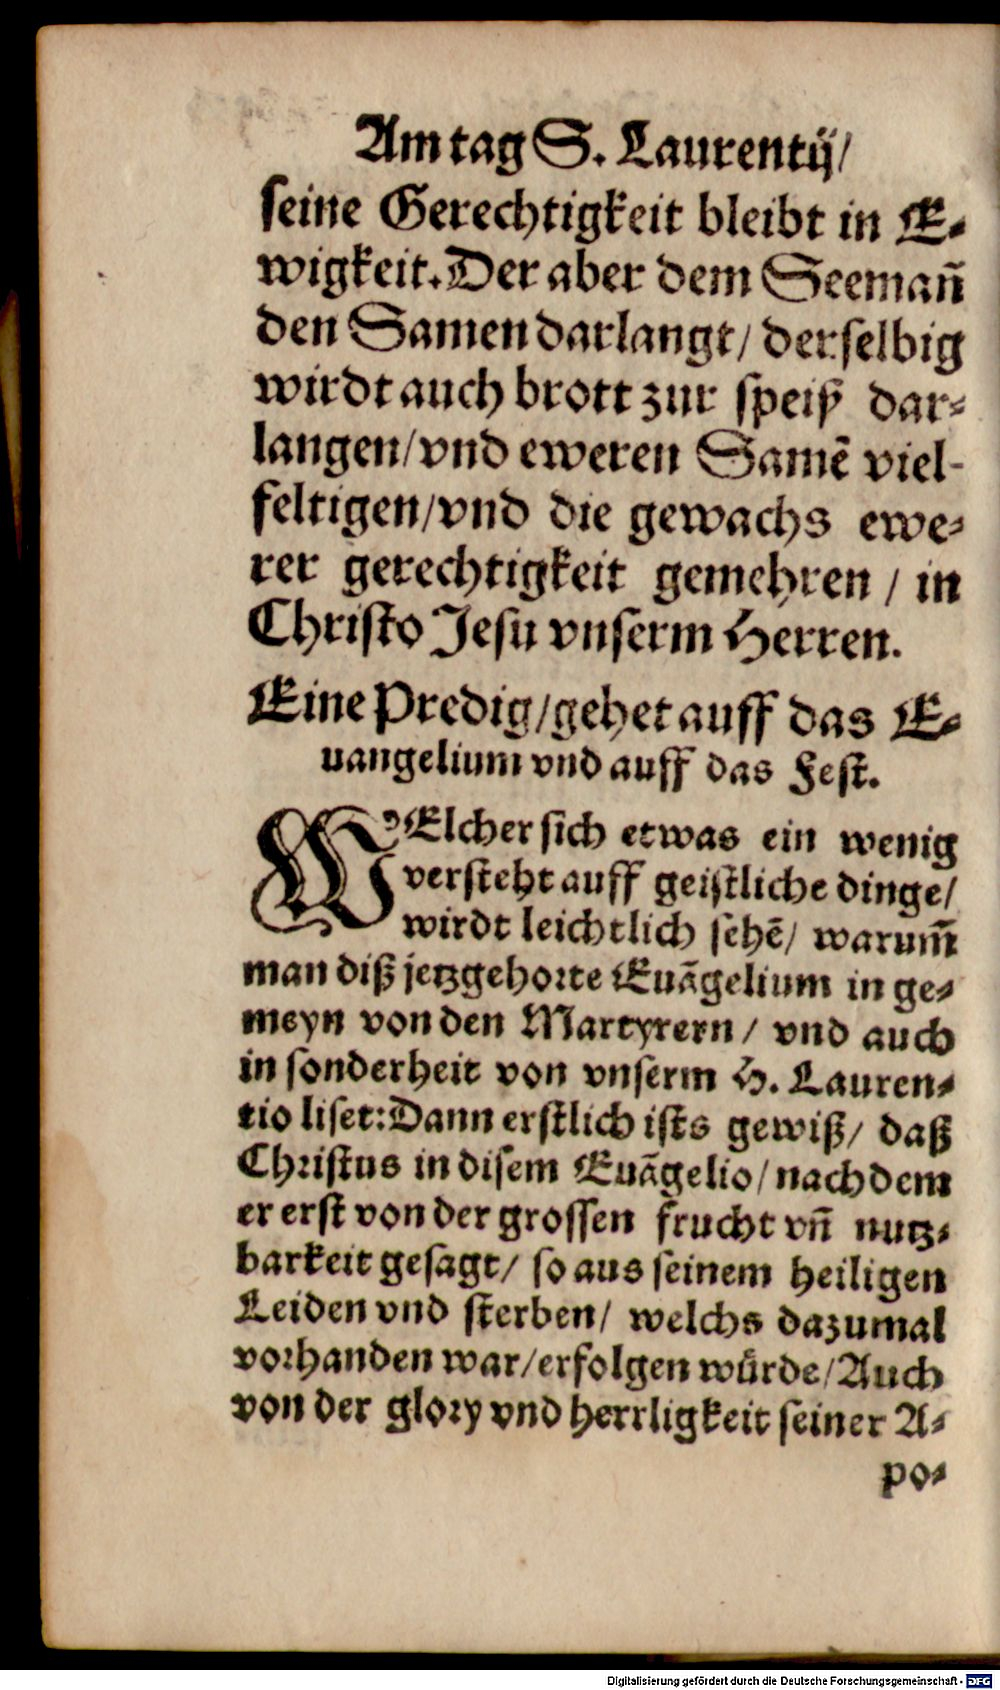 Am tag S. Laurentij/
seine Gerechtigkeit bleibt in E⸗
wigkeit. Der aber dem Seemañ
den Samen darlangt/ derselbig
wirdt auch brott zur speiß dar⸗
langen/ vnd eweren Samẽ viel-
feltigen/ vnd die gewachs ewe⸗
rer gerechtigkeit gemehren / in
Christo Jesu vnserm Herren.
Eine Predig/ gehet auff das E⸗
uangelium vnd auff das Fest.
WElcher sich etwas ein wenig
versteht auff geistliche dinge/
wirdt leichtlich sehẽ/ warum̃
man diß jetzgehorte Euãgelium in ge⸗
meyn von den Martyrern/ vnd auch
in sonderheit von vnserm H. Lauren⸗
tio liset: Dann erstlich ists gewiß/ daß
Christus in disem Euãgelio/ nach dem
er erst von der grossen frucht vñ nutz⸗
barkeit gesagt/ so aus seinem heiligen
Leiden vnd sterben/ welchs dazumal
vorhanden war/ erfolgen wuͤrde/ Auch
von der glory vnd herrligkeit seiner A⸗
po⸗
Digitalisierung gefördert durch die Deutsche Forschungsgemeinschaft - DFG